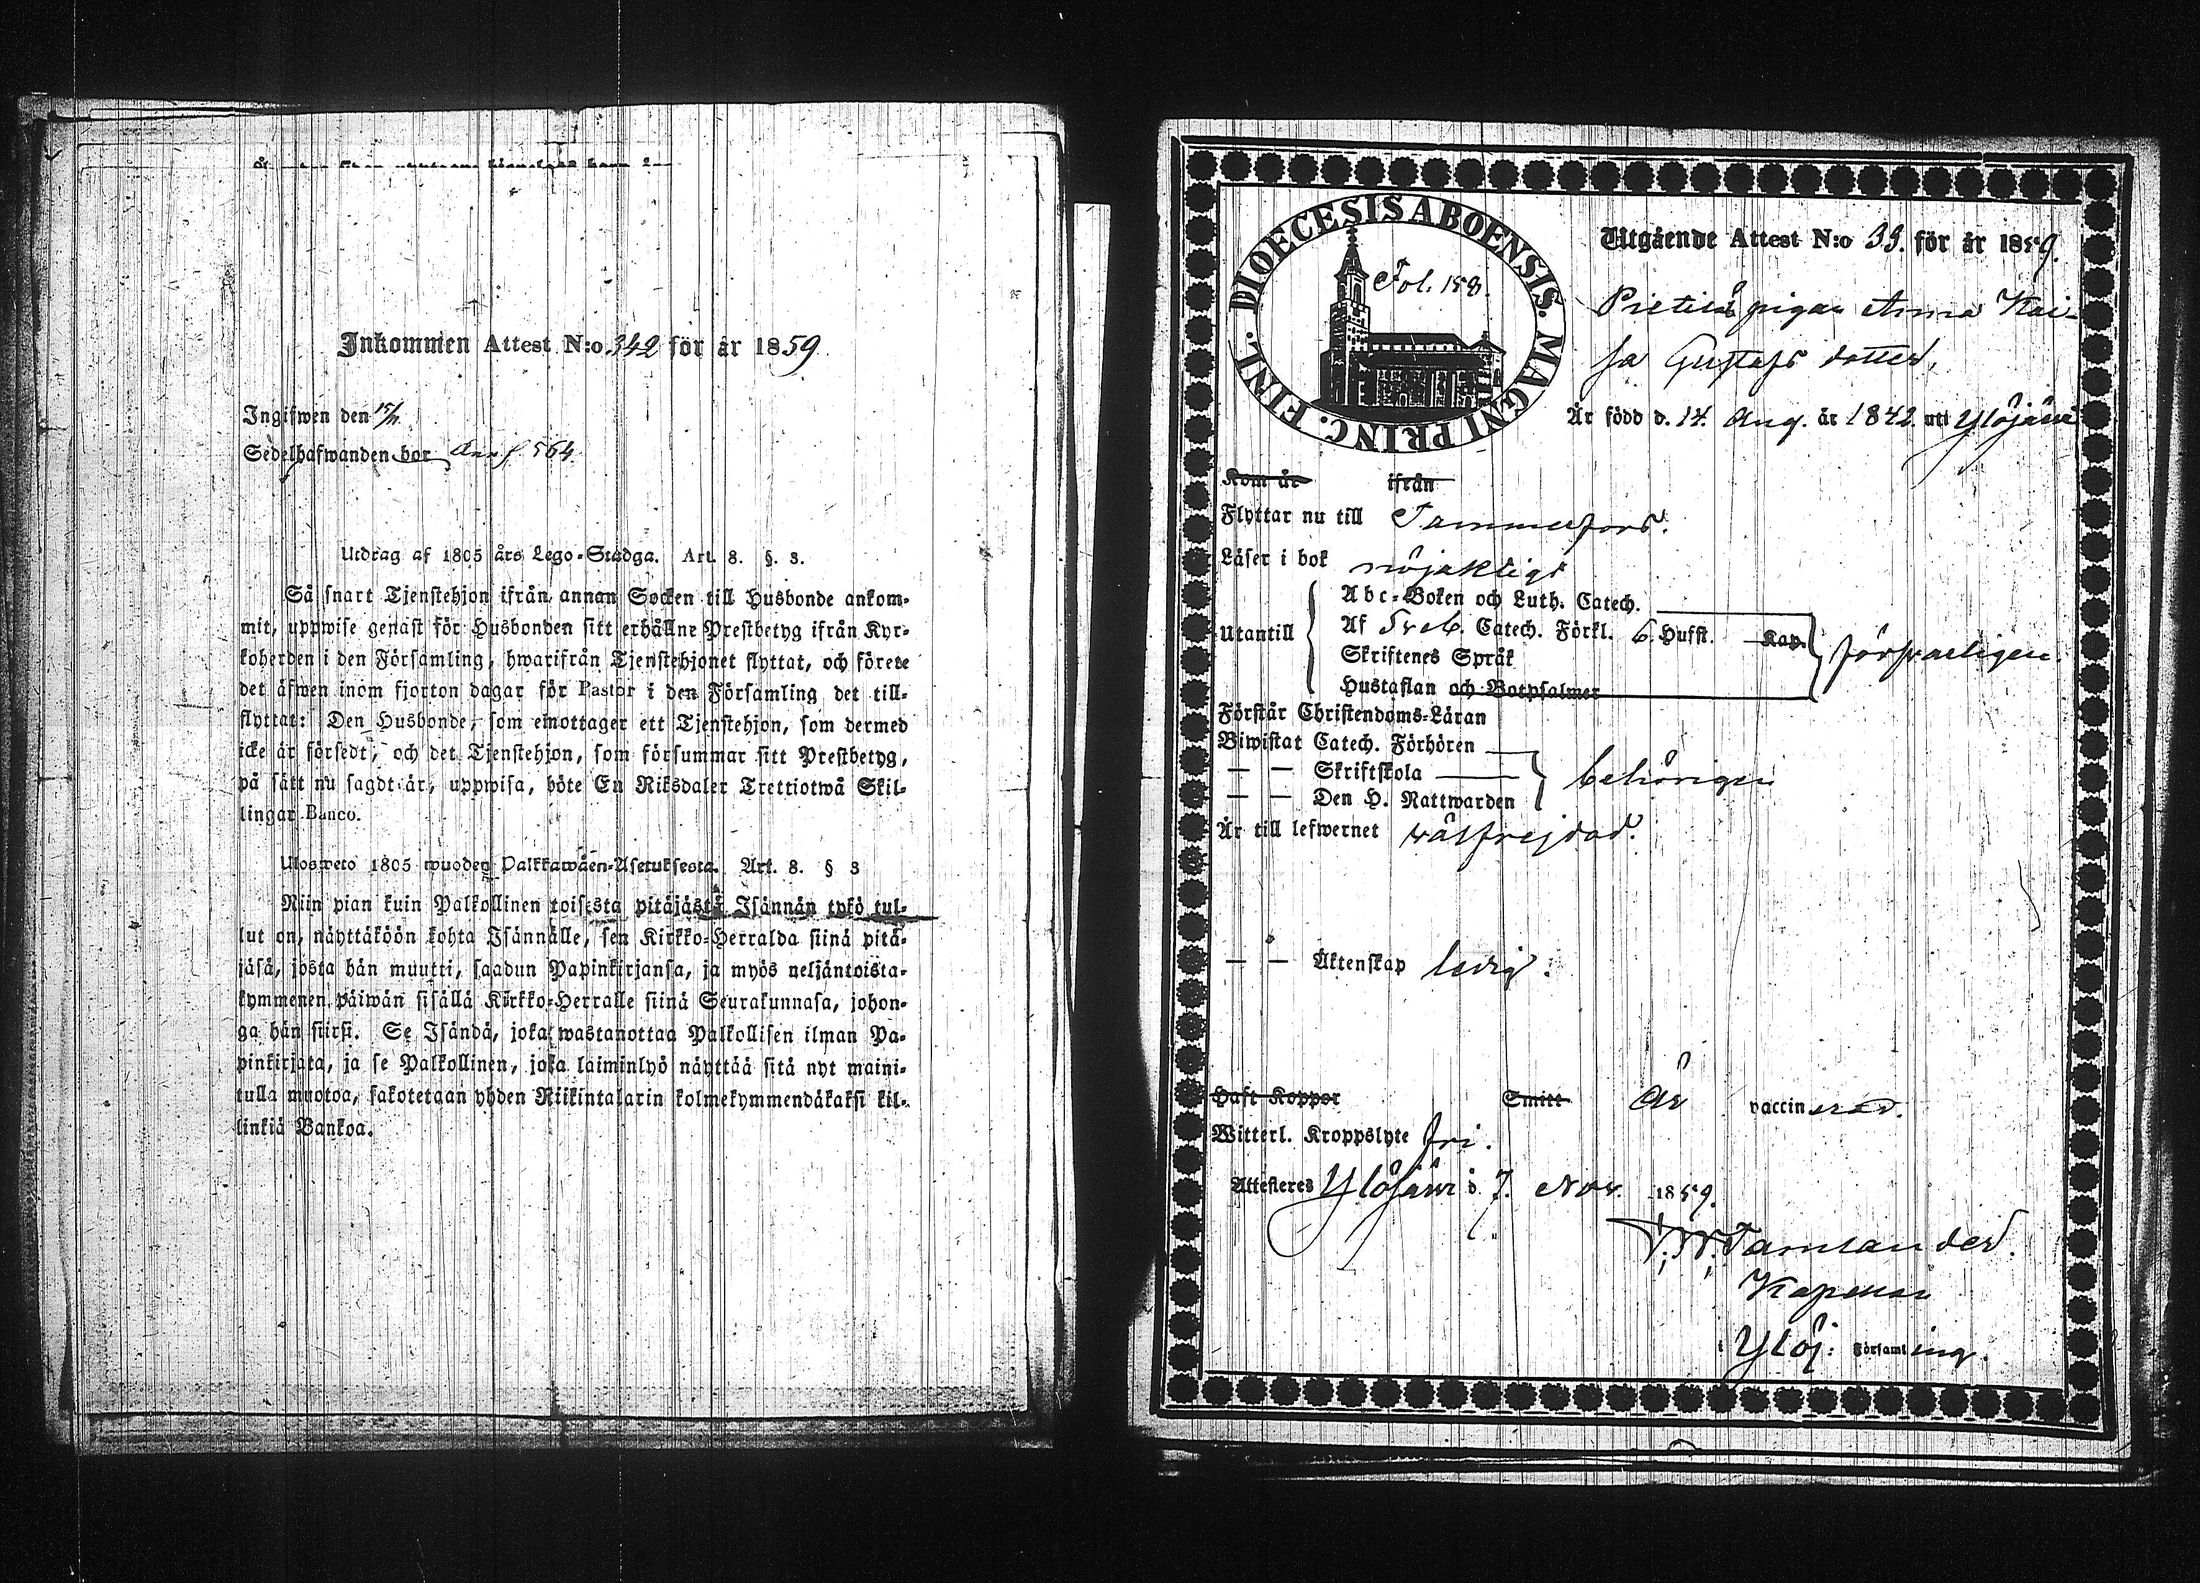 Inkommen Attest N:o 342 för år 1859
Ingifwen den 15/11
Sedelhafwanden bor
564
Utdrag af 1805 års Lego-Stadga. Art. 8. §. 3.
Så snart Tjenstehjon ifrån annan Socken till Husbonde ankom-
mit, uppwise genast för Husbonden sitt erhållne Prestbetyg ifrån Kyr-
koherden i den Församling, hwarifrån Tjenstehjonet flyttat, och förete
det äfwen inom fjorton dagar för Pastor i den Församling det till-
flyttat: Den Husbonde, som emottager ett Tjenstehjon, som dermed
icke är försedt, och det Tjenstehjon, som försummar sitt Prestbetyg,
på sätt nu sagdt är, uppwisa, böte En Riksdaler Trettiotwå Skil-
lingar Banco.
Ulosweto 1805 wuoden Palkkawäen-Asetuksesta. Art. 8. § 3
Niin pian kuin Palkollinen toisesta pitäjästä Isännän tykö tul-
lut on, näyttäköön kohta Isännälle, sen Kirkko-Herralda siinä pitä-
jäsä, josta hän muutti, saadun Papinkirjansa, ja myös neljäntoista-
kymmenen päiwän sisällä Kirkko-Herralle siinä Seurakunnasa, johon-
ga hän siirsi. Se Isändä, joka wastanottaa Palkollisen ilman Pa-
pinkirjata, ja se Palkollinen, joka laiminlyö näyttää sitä nyt maini-
tulla muotoa, sakotetaan yhden Riikintalarin kolmekymmendäkaksi kil-
linkiä Bankoa.
DIOECESIS ABOENSIS. MAGNI PRINC. FINL.
Fol. 158.
Utgående Attest N:o 33. för år 1859.
pigan Anna Kai-
sa Gustafs dotter,
Är född d. 14. Aug. år 1842. uti Ylöjärwi
Kom år ifrån
Flyttar nu till Tammerfors.
Läser i bok nöjaktigt
Utantill
Abc-Boken och Luth. Catech.
Af Sveb. Catech. Förkl. 6 Hufst. Kap.
Skriftenes Språk
Hustaflan och Botpsalmer
försvarligen.
Förstår Christendoms-Läran
Biwistat Catech. Förhören
— — Skriftskola
— — Den H. Nattwarden
behörigen
Är till lefwernet välfrejdad.
— — Äktenskap ledig.
Haft Koppor Smitt Är vaccinerad.
Witterl. Kroppslyte fri.
Attesteras Ylöjärwi d. 7. Nov. 1859.
Tamlander.
Kapellan
i Ylöj: Församling.